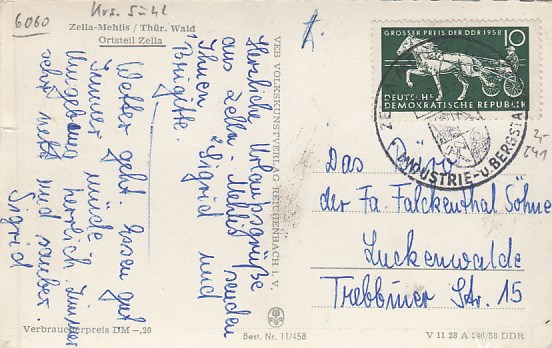 6060
Krs. Suhl
Zella-Mehlis / Thür. Wald
Ortsteil Zella
Herzliche Urlaubsgrüße
aus Zella-Mehlis senden
Ihnen Sigrid und
Brigitte.
Wetter geht. Essen gut
Immer müde
Umgebung herrlich. Zimmer
sehr nett und sauber.
Sigrid
Verbraucherpreis DM -,20
VEB VOLKSKUNSTVERLAG REICHENBACH I. V.
Best. Nr. 11/458
GROSSER PREIS DER DDR 1958 10
DEUTSCHE
DEMOKRATISCHE REPUBLIK
INDUSTRIE- U. BERGSTA
Das Büro
der Fa. Falckenthal Söhne
Luckenwalde
Trebbiner Str. 15
V 11 28 A 146/58 DDR